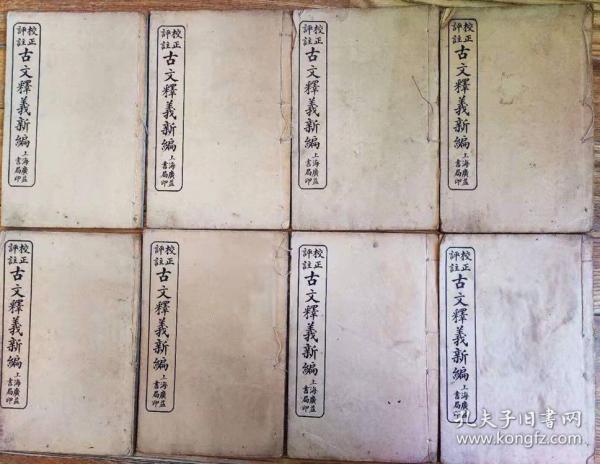 校正評註古文釋義新編上海廣益書局印
校正評註古文釋義新編上海廣益書局印
校正評註古文釋義新編上海廣益書局印
校正評註古文釋義新編上海廣益書局印
校正評註古文釋義新編上海廣益書局印
校正評註古文釋義新編上海廣益書局印
校正評註古文釋義新編上海廣益書局印
校正評註古文釋義新編上海廣益書局印
孔夫子旧书网
www.kongfz.com